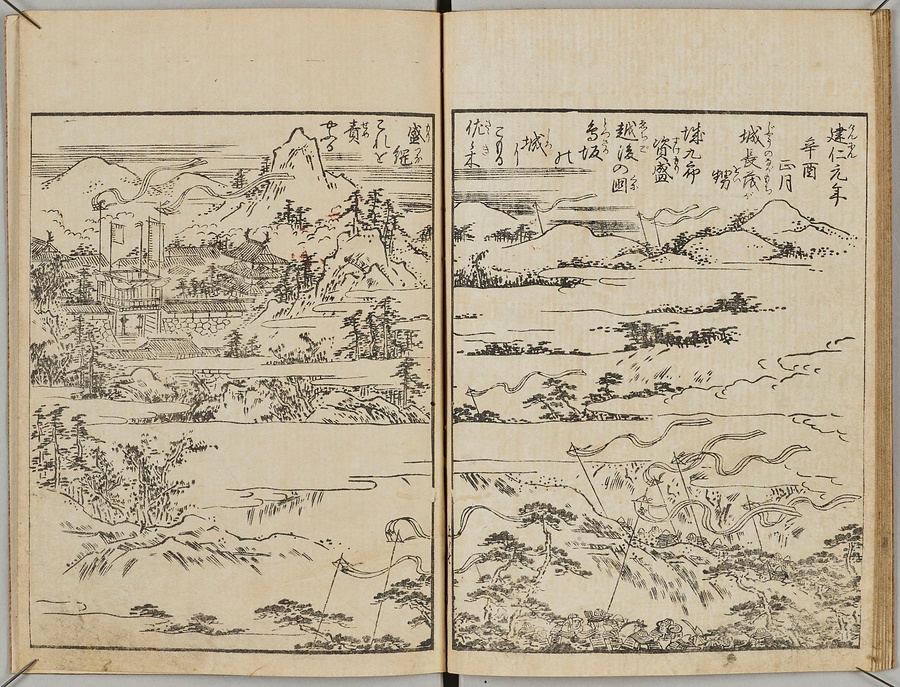 建仁元年
辛酉
正月
城長茂が
甥
城九郎
資盛
越後の国
鳥坂
の
城に
こもる
佐々木
盛綱
これを
責
やぶる